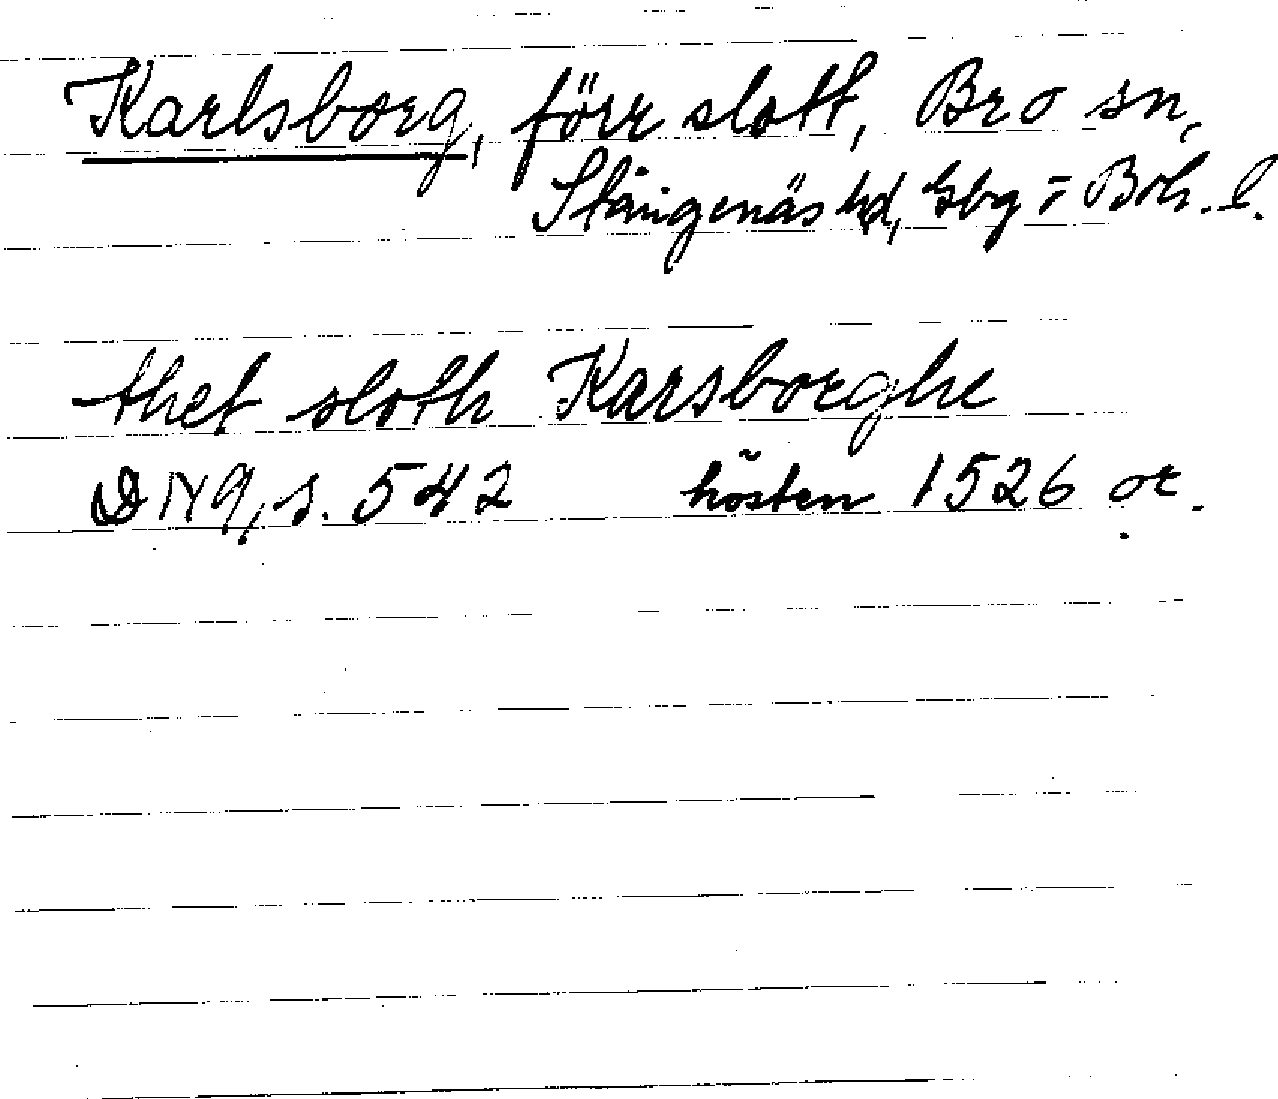 Karlsborg, förr slott, Bro sn,
Stångenäs hd, Gbg = Boh. l.
thet sloth Karsborghe
DN 9, s. 542 hösten 1526 or.